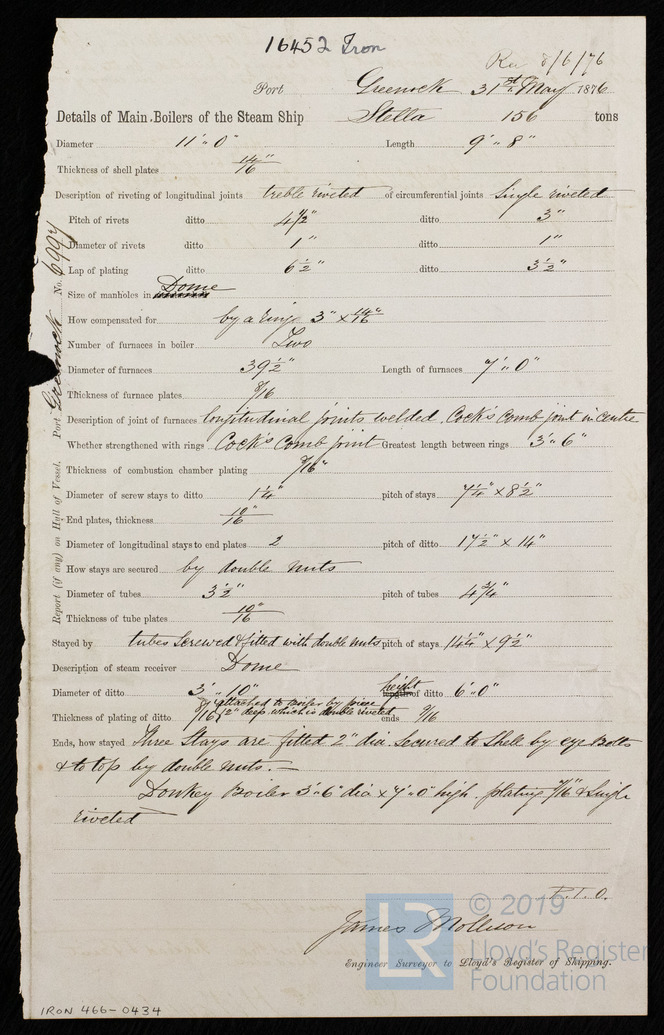 16452 Iron
Rec 8/6/76
Port Greenock 31st May 1876
Details of Main Boilers of the Steam Ship Stella 156 tons
Diameter 11'"0" Length 9'"8"
Thickness of shell plates 14/16"
Description of riveting of longitudinal joints treble riveted of circumferential joints Single riveted
Pitch of rivets ditto 4½" ditto 3"
Diameter of rivets ditto 1" ditto 1"
Lap of plating ditto 6½" ditto 3½"
Size of manholes in Dome
How compensated for by a ring 3" x 14/16"
Number of furnaces in boiler Two
Diameter of furnaces 39½" Length of furnaces 7'"0"
Thickness of furnace plates 8/16
Description of joint of furnaces longitudinal joints welded. Cock's Comb joint in centre
Whether strengthened with rings Cock's Comb joint Greatest length between rings 3'"6"
Thickness of combustion chamber plating /16"
Diameter of screw stays to ditto 1¼" pitch of stays 7¼" x 8½"
End plates, thickness 10/16"
Diameter of longitudinal stays to end plates 2 pitch of ditto 17½" x 14"
How stays are secured by double nuts
Diameter of tubes 3½" pitch of tubes 4¾"
Thickness of tube plates 10/16"
Stayed by tubes screwed & fitted with double nuts pitch of stays 14¼" x 9½"
Description of steam receiver Dome
Diameter of ditto 3'"10" height of ditto 6'"0"
attached to by piece
Thickness of plating of ditto 8/16 12" deep which is double riveted ends 9/16
Ends, how stayed Three Stays are fitted 2" dia. Secured to Shell by eye Bolts
& to top by double nuts. —
Donkey Boiler 3'"6" dia x 7'"0" high. plating 7/16" & Single
riveted
P.T.O.
James Mollison
Engineer Surveyor to Lloyd's Register of Shipping.
Report (if any) on Hull of Vessel. Port Greenock No. 6997
IRON 466-0434
LR
© 2019
Lloyd's Register
Foundation